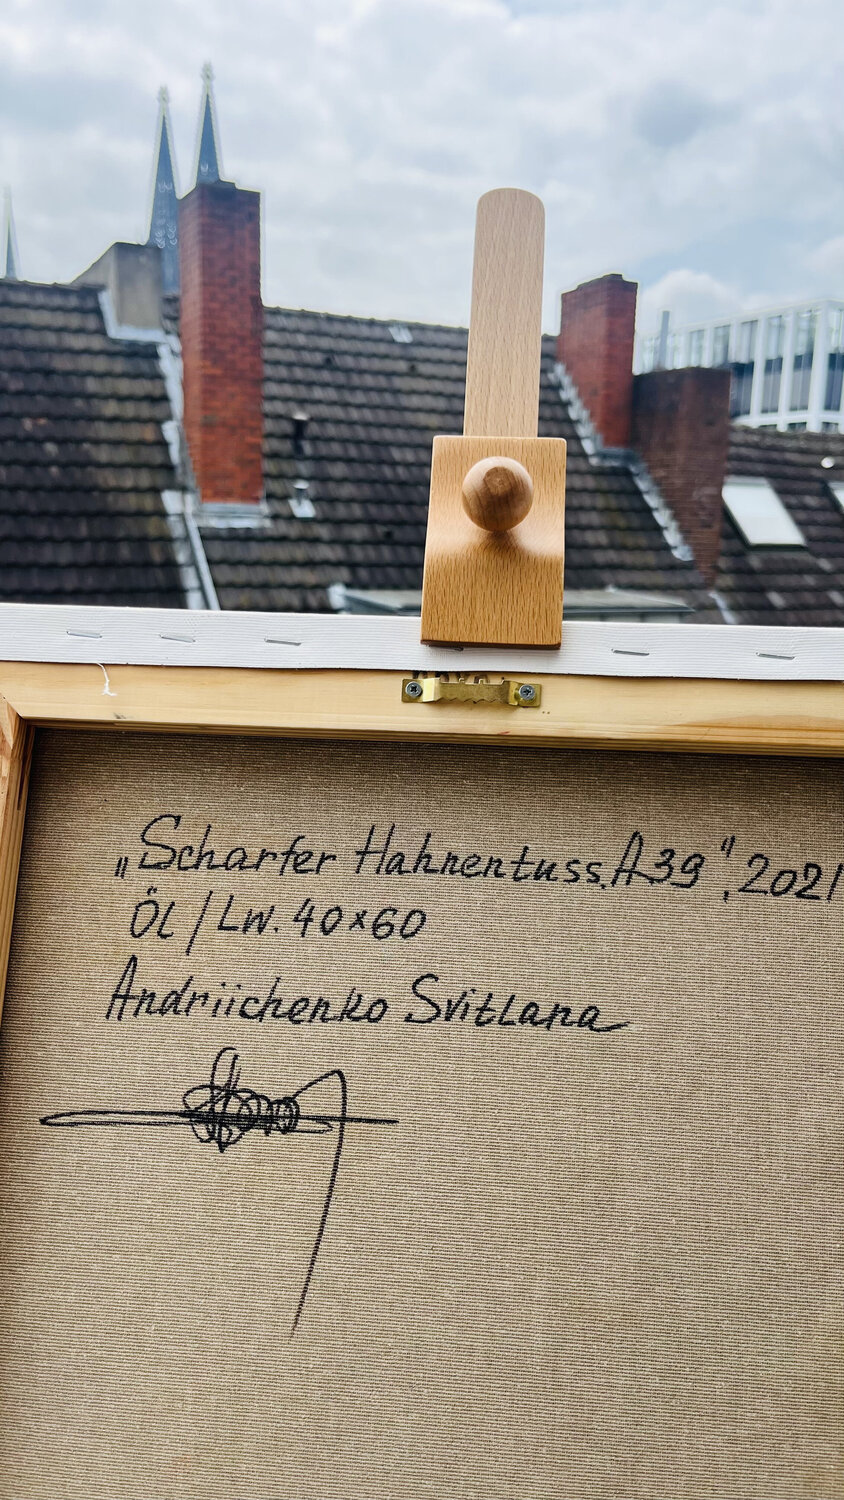 „Scharfer Hahnentuss. A39", 2021
ÖL / Lw. 40×60
Andriichenko Svitlana